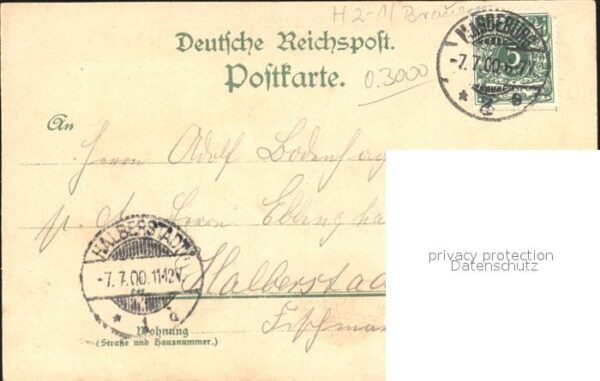 H 2-1/Brauerei
Deutsche Reichspost.
Postkarte.
0.3000
MAGDEBURG
-7.7.00.
* 1 g
5
An
Herrn Adolf Bodenhag
p. A. Herrn Ebbingha
HALBERSTADT
-7.7.00.11-12V.
* 1 d
Halberstad
Fischma
Wohnung
(Straße und Hausnummer.)
privacy protection
Datenschutz